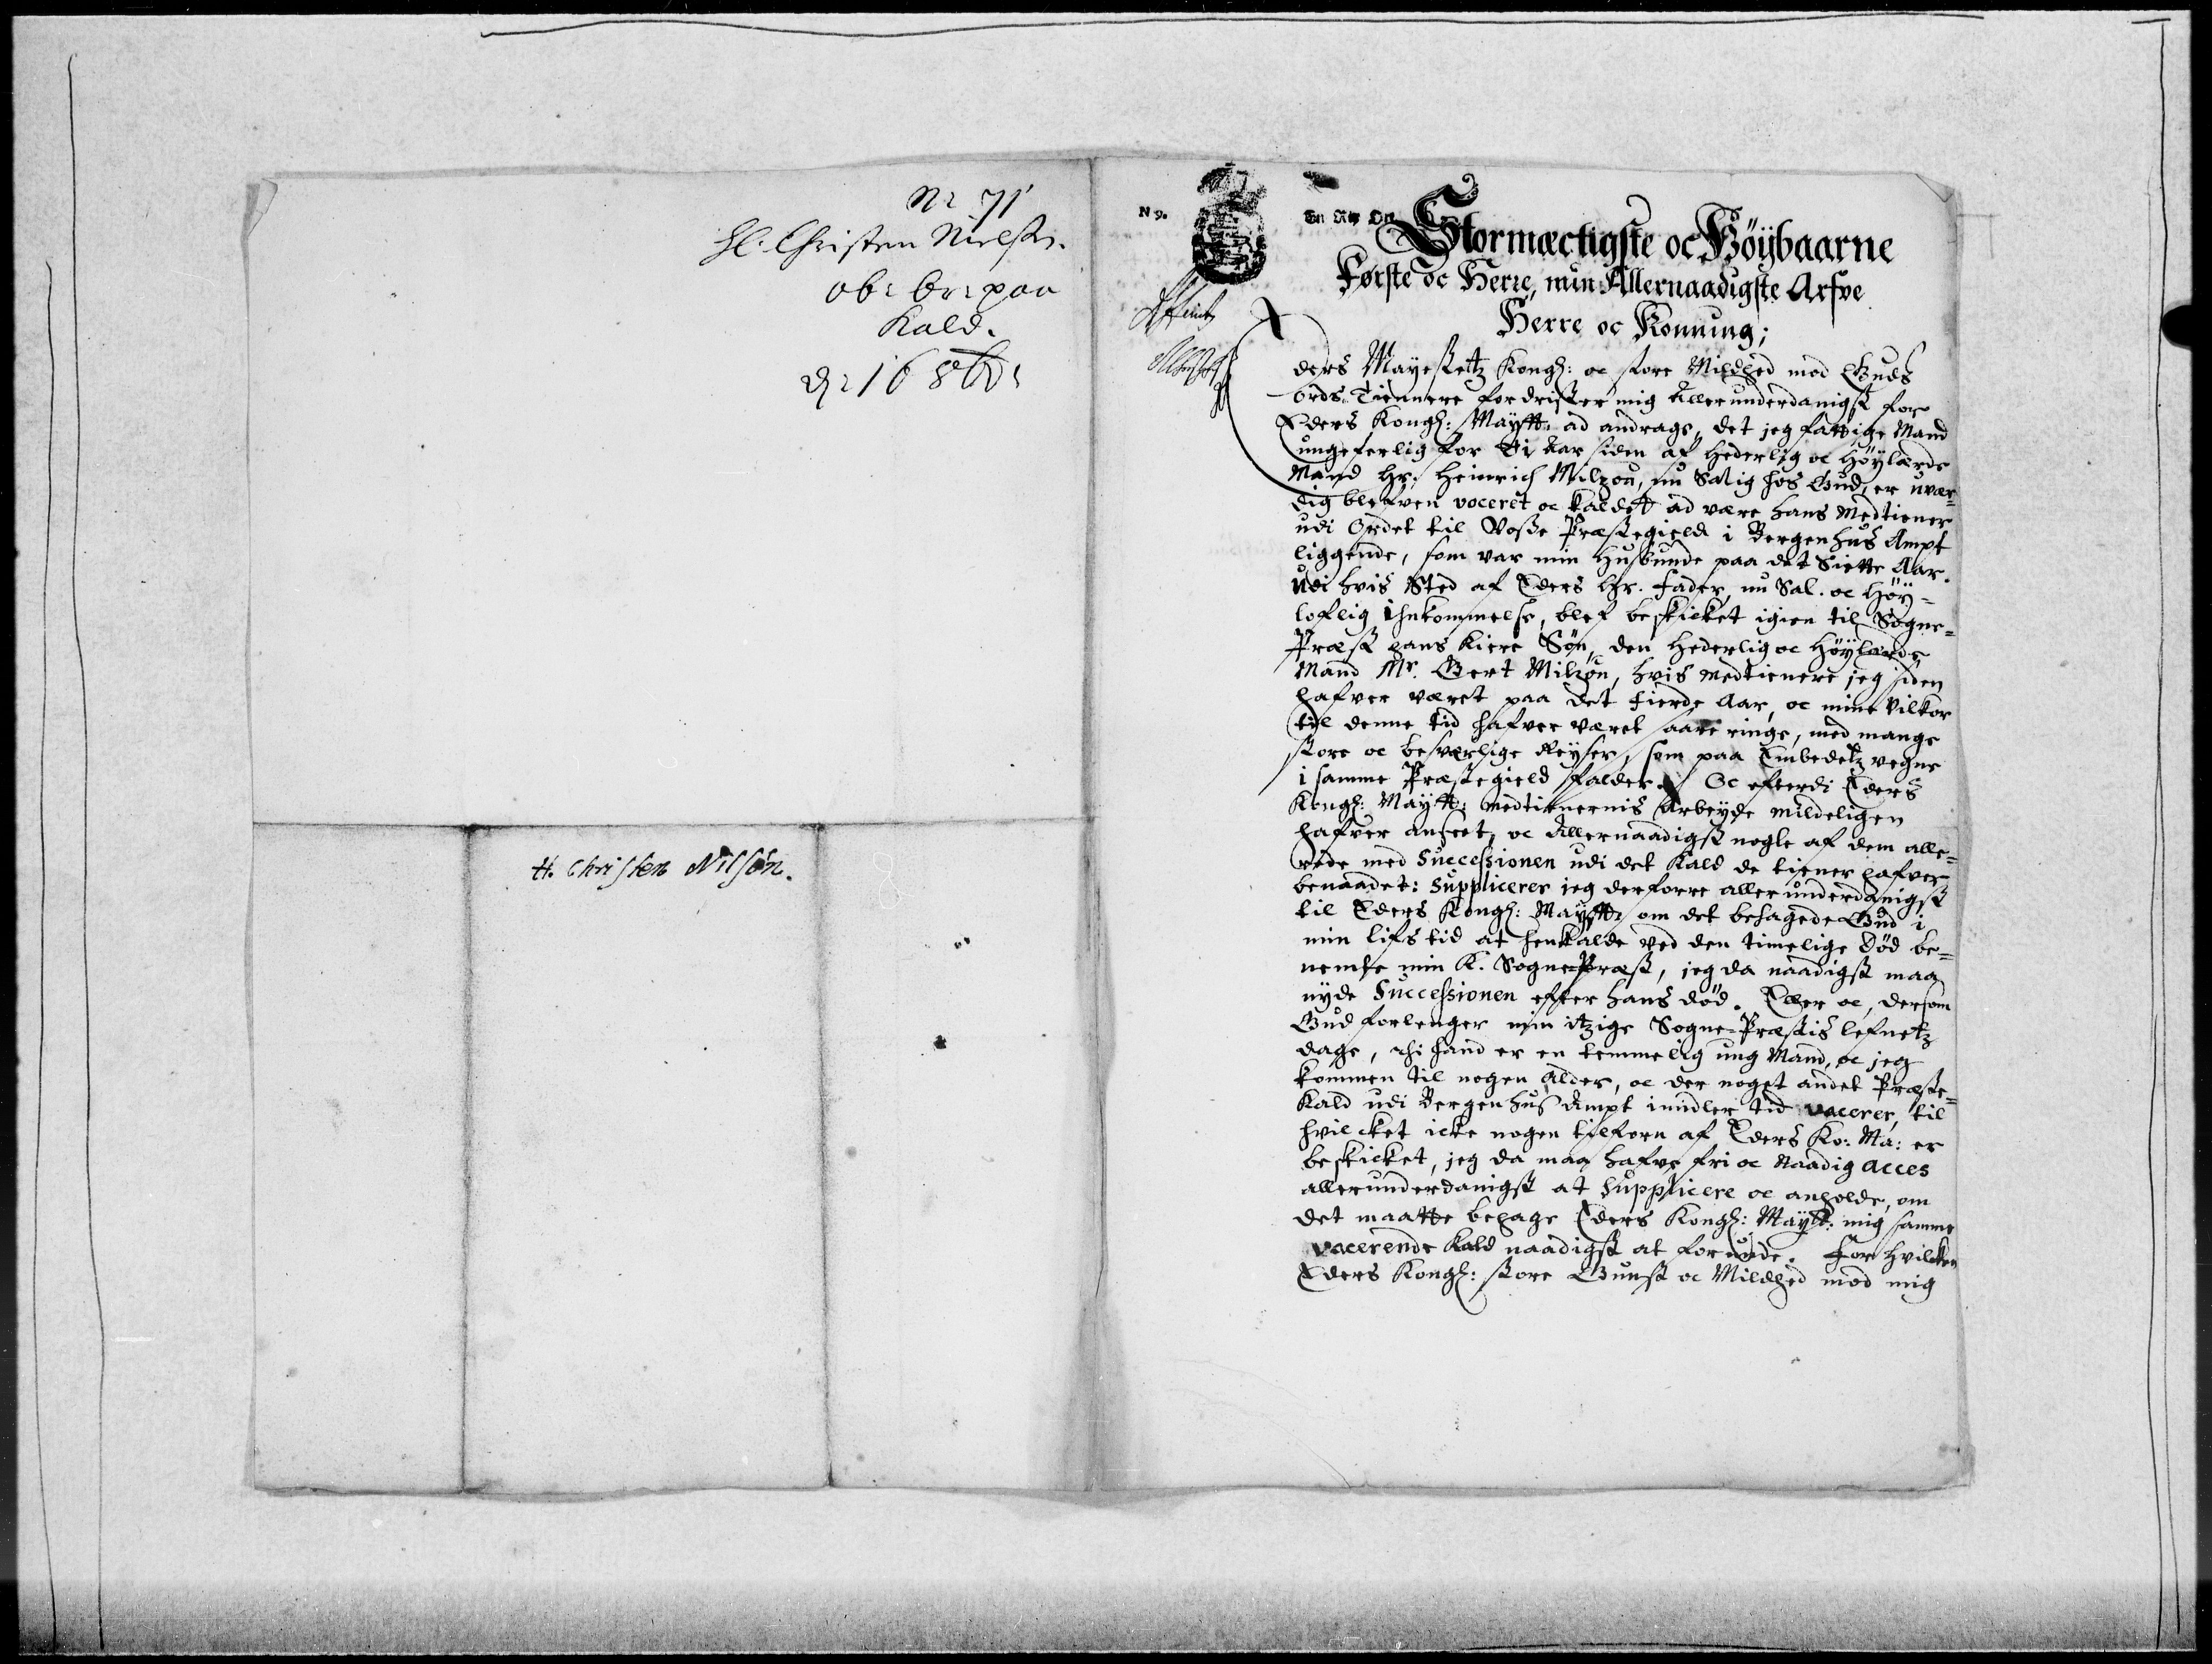 Nr 71
Hl. Christen Nielss.
ob: br: paa
Kald.
H. Christen Nilsön.
N 9.
En Rix Ort
Stormæctigste oc Höÿbaarne
Första oc Herre, min Allernaadigste Arfve
Herre oc Konning;
Eders Mayestetz Kongl: oc store Mildhed mod Guds
ords Tiennere fordrister mig Allerunderdanigst for
Eders Kongl: Maÿtt: ad andrage, det jeg fattige Mand
ungeferlig for Ti aar siden af Hederlig oc Höÿlærde
Mand Hr. Heinrich Milzou, nu Salig hos Gud, er uvær=
dig blefven voceret oc kaldet ad være hans Medtiener
udi Ordet til Vosse Præstegield i Bergenhus Ampt
liggende, som var min Husbunde paa det Siette Aar.
Udi hvis Sted af Eders Hr. Fader, nu Sal. oc Höÿ=
loflig Ihukommelse, blef beskicket igien til Sogne=
Præst hans kiere Sön, den Hederlig oc Höÿlærde
Mand Mr. Gert Milzou, hvis medtienere jeg siden
hafver været paa det fierde Aar, oc mine vilkor
til denne tid hafver været saare ringe, med mange
store oc besværlige Reÿser, som paa Embedetz vegne
i samme Præstegield falder. Oc efterdi Eders
Kongl: Maÿtt: medtienernis Arbeÿde mildeligen
hafver anseet, oc Allernaadigst nogle af dem alle=
rede med Successionen udi det Kald de tiener hafver
benaadet: Supplicerer jeg derforre allerunderdanigst
til Eders Kongl: Maÿtt: om det behagede Gud i
min lifs tid at henkalde ved den timelige Död be=
nemte min K. SognePræst, jeg da naadigst maa
nÿde Successionen efter hans död. Eller oc, dersom
Gud forlenger min itzige Sogne-Præstis lefnetz
dage, thi hand er en temmelig ung Mand, oc jeg
kommen til nogen Alder, oc der noget andet Præste=
Kald udi Bergenhus Ampt imidler tid vacerer, til
hvilcket icke nogen tilforn af Eders Ko: Ma: er
beskicket, jeg da maa hafve fri oc Naadig acces
allerunderdanigst at Supplicere oc anholde, om
det maatte behage Eders Kongl: Maÿtt: mig samme
vacerende Kald naadigst at forunde. For hvilcken
Eders Kongl: store Gunst oc Mildhed mod mig